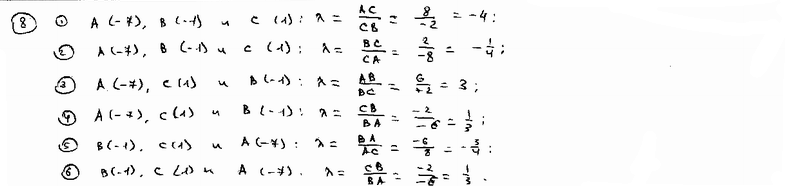 ⑧ ① A (-7), B (-1) и C (1): λ = AC/CB = 8/-2 = -4;
② A (-7), B (-1) и C (1): λ = BC/CA = 2/-8 = -1/4;
③ A (-7), C (1) и B (-1): λ = AB/BC = 6/+2 = 3;
④ A (-7), C (1) и B (-1): λ = CB/BA = -2/-6 = 1/3;
⑤ B (-1), C (1) и A (-7): λ = BA/AC = -6/8 = -3/4;
⑥ B (-1), C (1) и A (-7). λ = CB/BA = -2/-6 = 1/3.